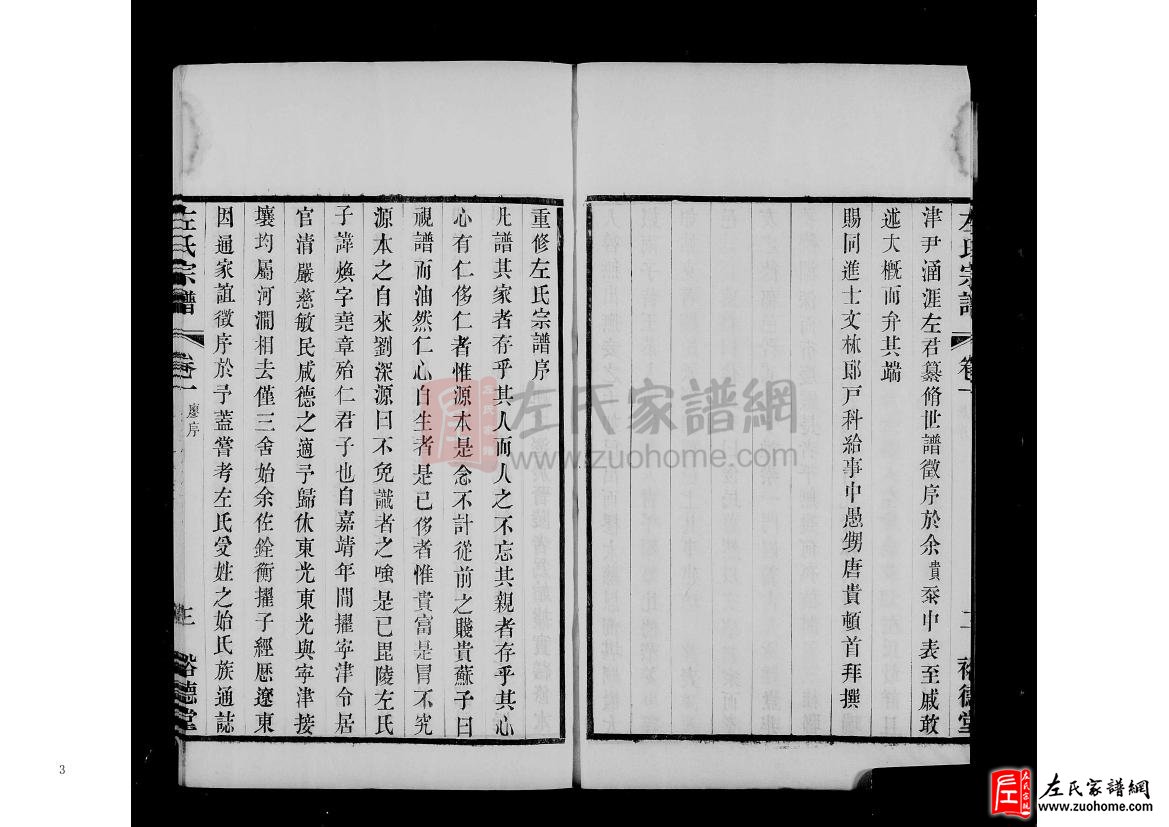 左氏宗譜
卷一
二
裕德堂
津尹涵涯左君纂脩世譜徵序於余貴忝中表至戚敢
述大概而弁其端
賜同進士文林郎戸科給事中愚甥唐貴頓首拜撰
重修左氏宗譜序
凡譜其家者存乎其人而人之不忘其親者存乎其心
心有仁侈仁者惟源本是念不計從前之賤貴蘇子曰
視譜而油然仁心自生者是已侈者惟貴富是冒不究
源本之自來劉深源曰不免識者之嗤是已毘陵左氏
子諱煥字堯章殆仁君子也自嘉靖年間擢寜津令居
官清嚴慈敏民咸德之適予歸休東光東光與寜津接
壤均屬河澗相去僅三舍始余佐銓衡擢子經歷遼東
因通家誼徵序於予蓋嘗考左氏受姓之始氏族通誌
左氏宗譜
卷一
廖序
三
裕德堂
左氏家譜網
www.zuohome.com
3
左氏家譜網
www.zuohome.com